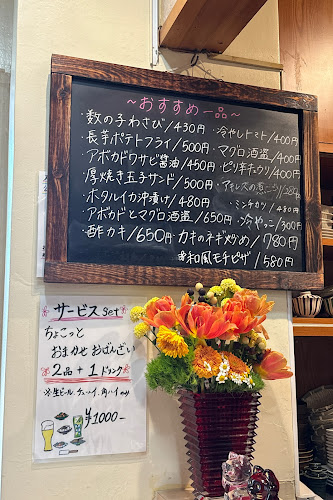 ~おすすめ一品~
・数の子わさび/430円
・長芋ポテトフライ/500円
・アボカドワサビ醤油/450円
・厚焼き玉子サンド/500円
・ホタルイカ沖漬け/480円
・アボカドとマグロ酒盗/650円
・酢カキ/650円
・冷やしトマト/400円
・マグロ酒盗/400円
・ピリ辛キュウリ/400円
・ミンチカツ/480円
・冷やっこ/300円
・カキのネギ炒め/780円
・和風モチピザ/580円
サービスset
ちょこっと
おまかせ おばんざい
2品+1ドリンク
※生ビール、チューハイ、角ハイのみ
¥1000-